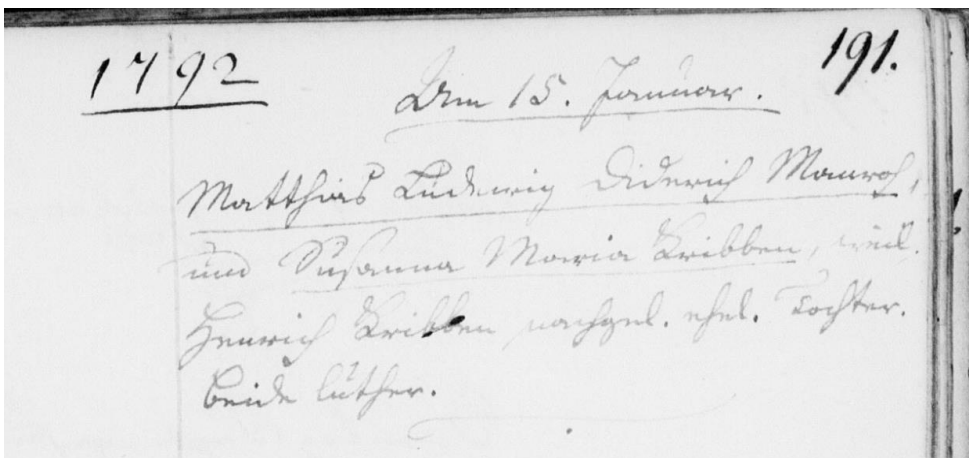 1792
191.
Am 15. Januar.
Matthias Ludewig Diderich Manroh,
und Susanna Maria Kribben, weil.
Henrich Kribben nachgel. ehel. Tochter.
beide luther.